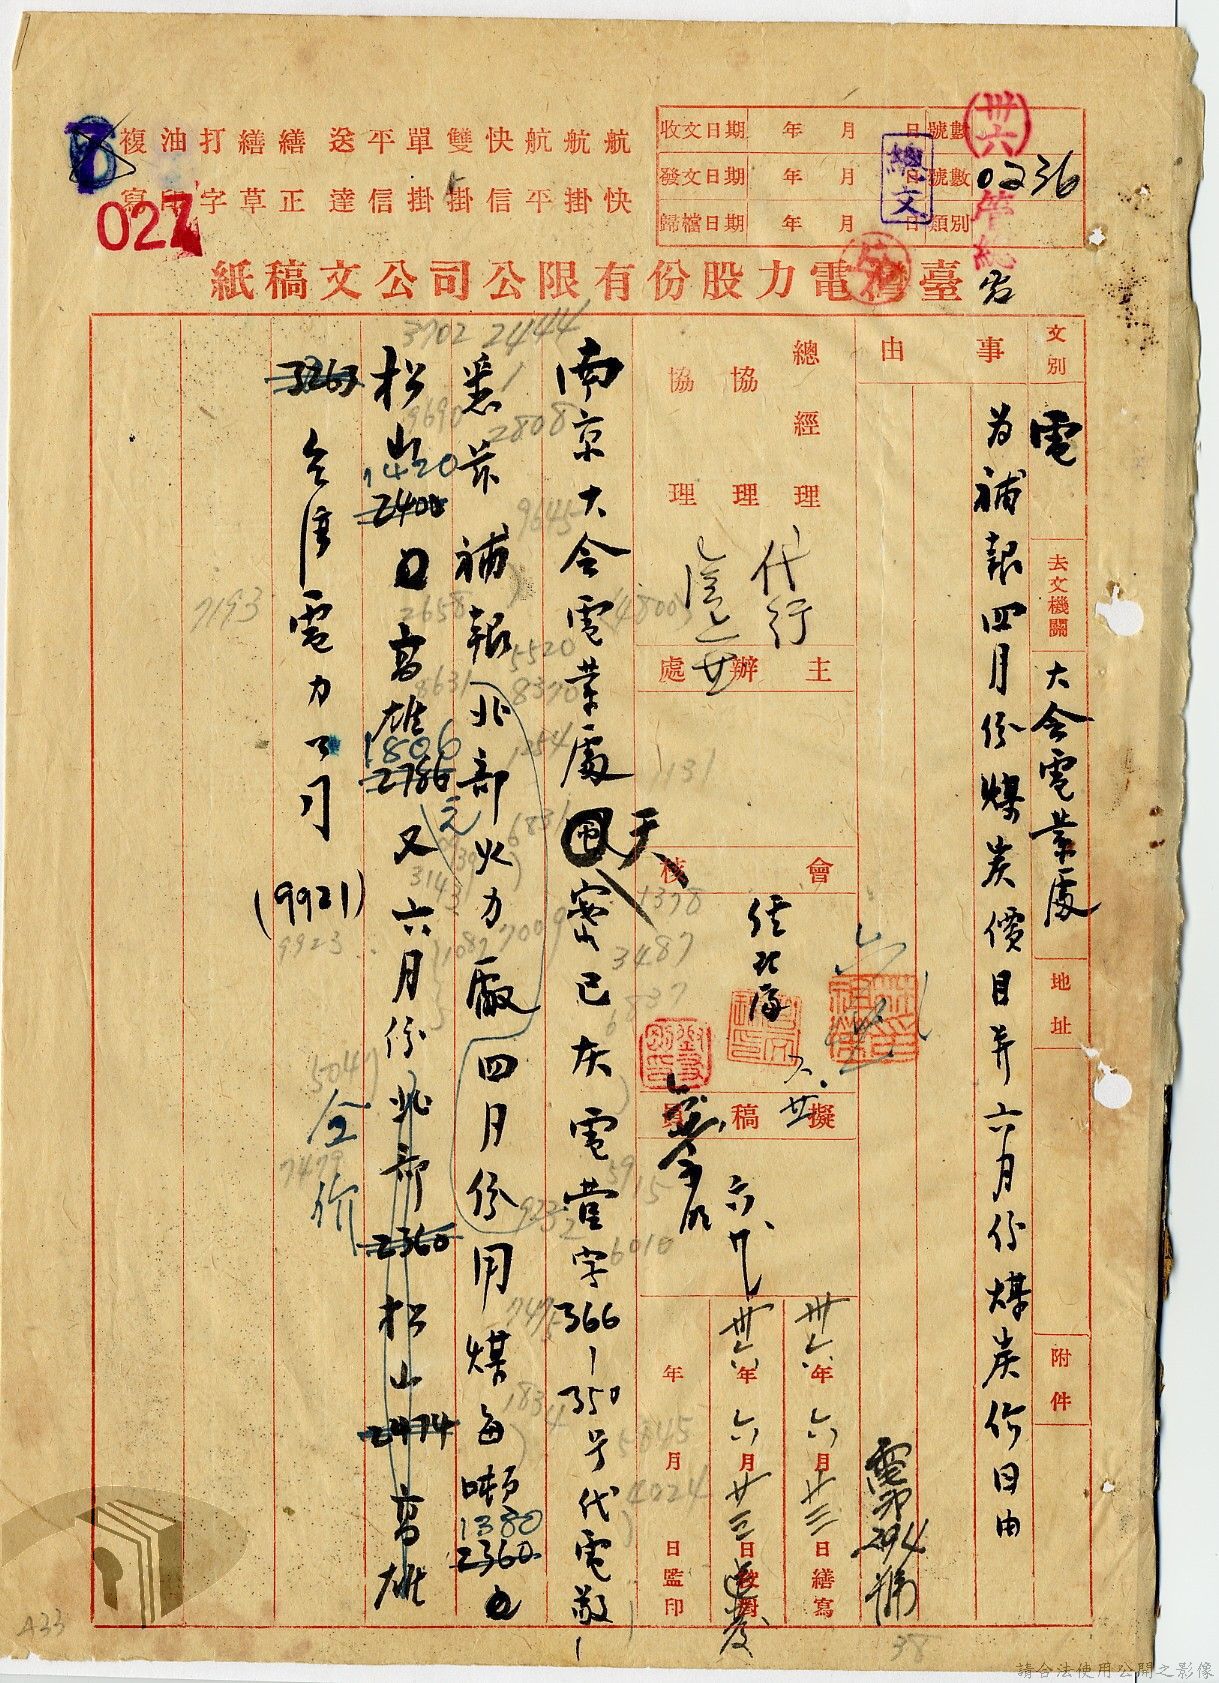 複寫 油印 打字 繕草 繕正 送達 平信 單掛 雙掛 快信 航平 航掛 航快
027
收文日期 年 月 日 號數
發文日期 年 月 日 號數 0236
歸檔日期 年 月 日 類別
總文
卅六
臺灣電力股份有限公司公文稿紙
文別 電
去文機關 大會電業處
地址
附件
事由
為補報四月份煤炭價目并六月份煤炭价目由
電 294 號
總經理
協理
協理
代行
主辦處
會核
擬稿員
卅六年 六月 廿三日 繕寫
卅六年 六月 廿三日 校對
年 月 日 監印
南京大會電業處 天 密已灰電營字366-350号代電敬
悉茲補報北部火力廠四月份用煤每噸 1380 2360
松山 1420 2400 高雄 1806 2786 元 又六月份北部 2360 松山 2474 高雄
3263 台灣電力公司 (9921)
3702 2444
9690 2808
9645
7193
2658 4800
5520
8631 8370
1254
7131
6831
3143
1378
1082 7009
9923
3487
6837
5041
7479
5915
9232
6010
7475
1834
5845
4024
38
A33
請合法使用公開之影像